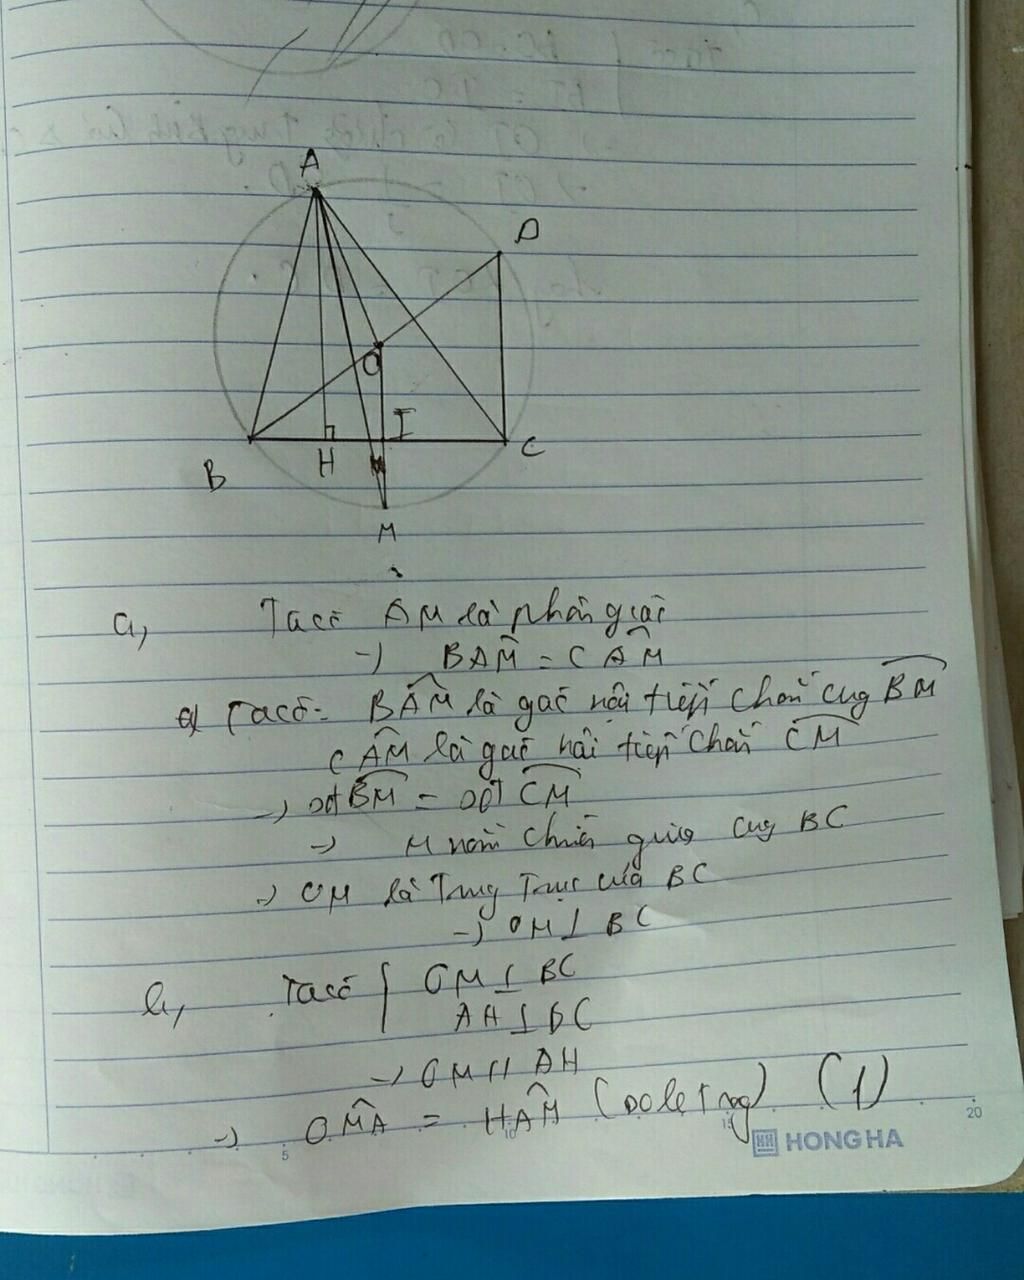 A
D
O
I
B
H
C
M
a, Ta có AM là phân giác
→ BAM̂ = CAM̂
Ta có: BÂM là góc nội tiếp chắn cung BM
CÂM là góc nội tiếp chắn CM
→ sđ BM = sđ CM
→ M nằm chính giữa cung BC
→ OM là Trung Trực của BC
→ OM ⊥ BC
b, Ta có { OM ⊥ BC
AH ⊥ BC
→ OM // AH
→ OM̂A = HÂM (so le trong) (1)
5 10 15 20
HONG HA